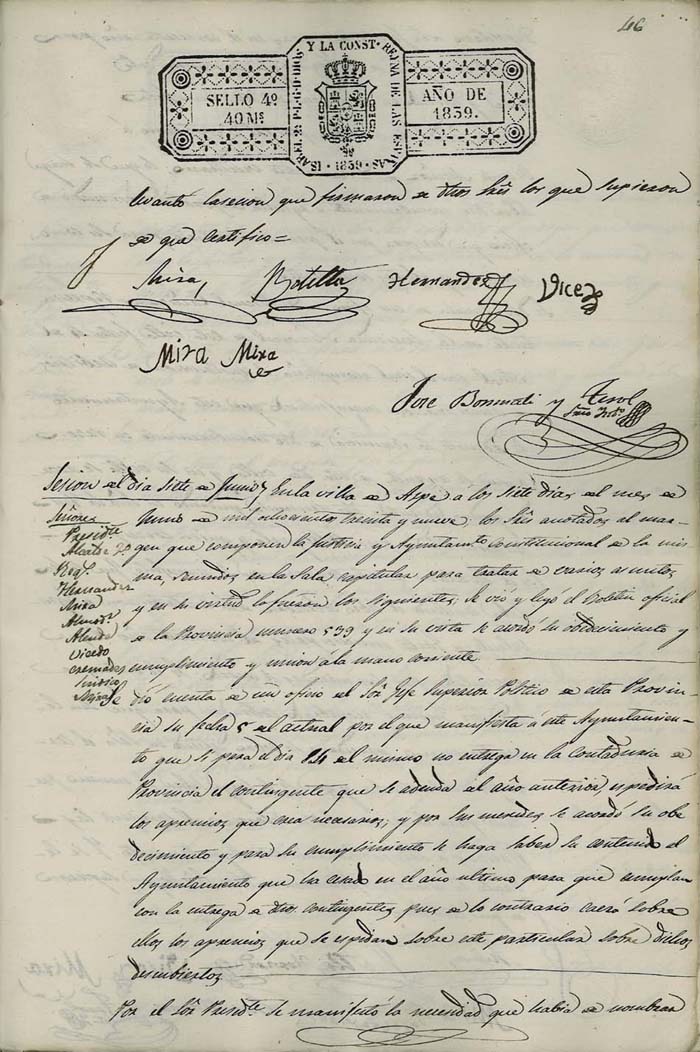 46
SELLO 4º
40 Ms
ISABEL 2ª P.L.G.D.DIOS Y LA CONST. REINA DE LAS ESPAÑAS
1839
AÑO DE
1839.
levantó la sesion que firmaron de dhos Sres los que supieron
de que certifico=
Mira, Botella Hernandez Vicedo
Mira Mira
Jose Bonmati y Terol
Srio Intº
Sesion del dia siete de Junio
En la villa de Aspe a los siete dias del mes de
Señores
Presidte
Alcalde 2º
Regs.
Hernandez
Mira
Almodr
Alenda
Vicedo
Cremades
Sindico
Miralle
Junio de mil ochocientos treinta y nueve: los Sres anotados al mar-
gen que componen la Justicia y Ayuntamto Constitucional de la mis-
ma, reunidos en la Sala capitular para tratar de varios asuntos
y en su virtud lo fueron los siguientes; Se vió y leyó el Boletin oficial
de la Provincia numero 539 y en su vista se acordó su obedecimiento y
cumplimiento y union á la mano corriente.
Se dió cuenta de un oficio del Sor Gefe Superior Politico de esta Provin-
cia su fecha 5 del actual por el que manifiesta á este Ayuntamien-
to que si para el dia 14 del mismo no entrega en la Contaduria de
Provincia el contingente que se adeuda del año anterior espedirá
los apremios que crea necesarios; y por sus mercedes se acordó su obe
decimiento y para su cumplimiento se haga saber su contenido al
Ayuntamiento que ha cesado en el año ultimo para que cumplan
con la entrega de dhos contingentes, pues de lo contrario caerá sobre
ellos los apremios que se espidan sobre este particular sobre dichos
descubiertos
Por el Sor Presdte se manifestó la necesidad que habia de nombrar